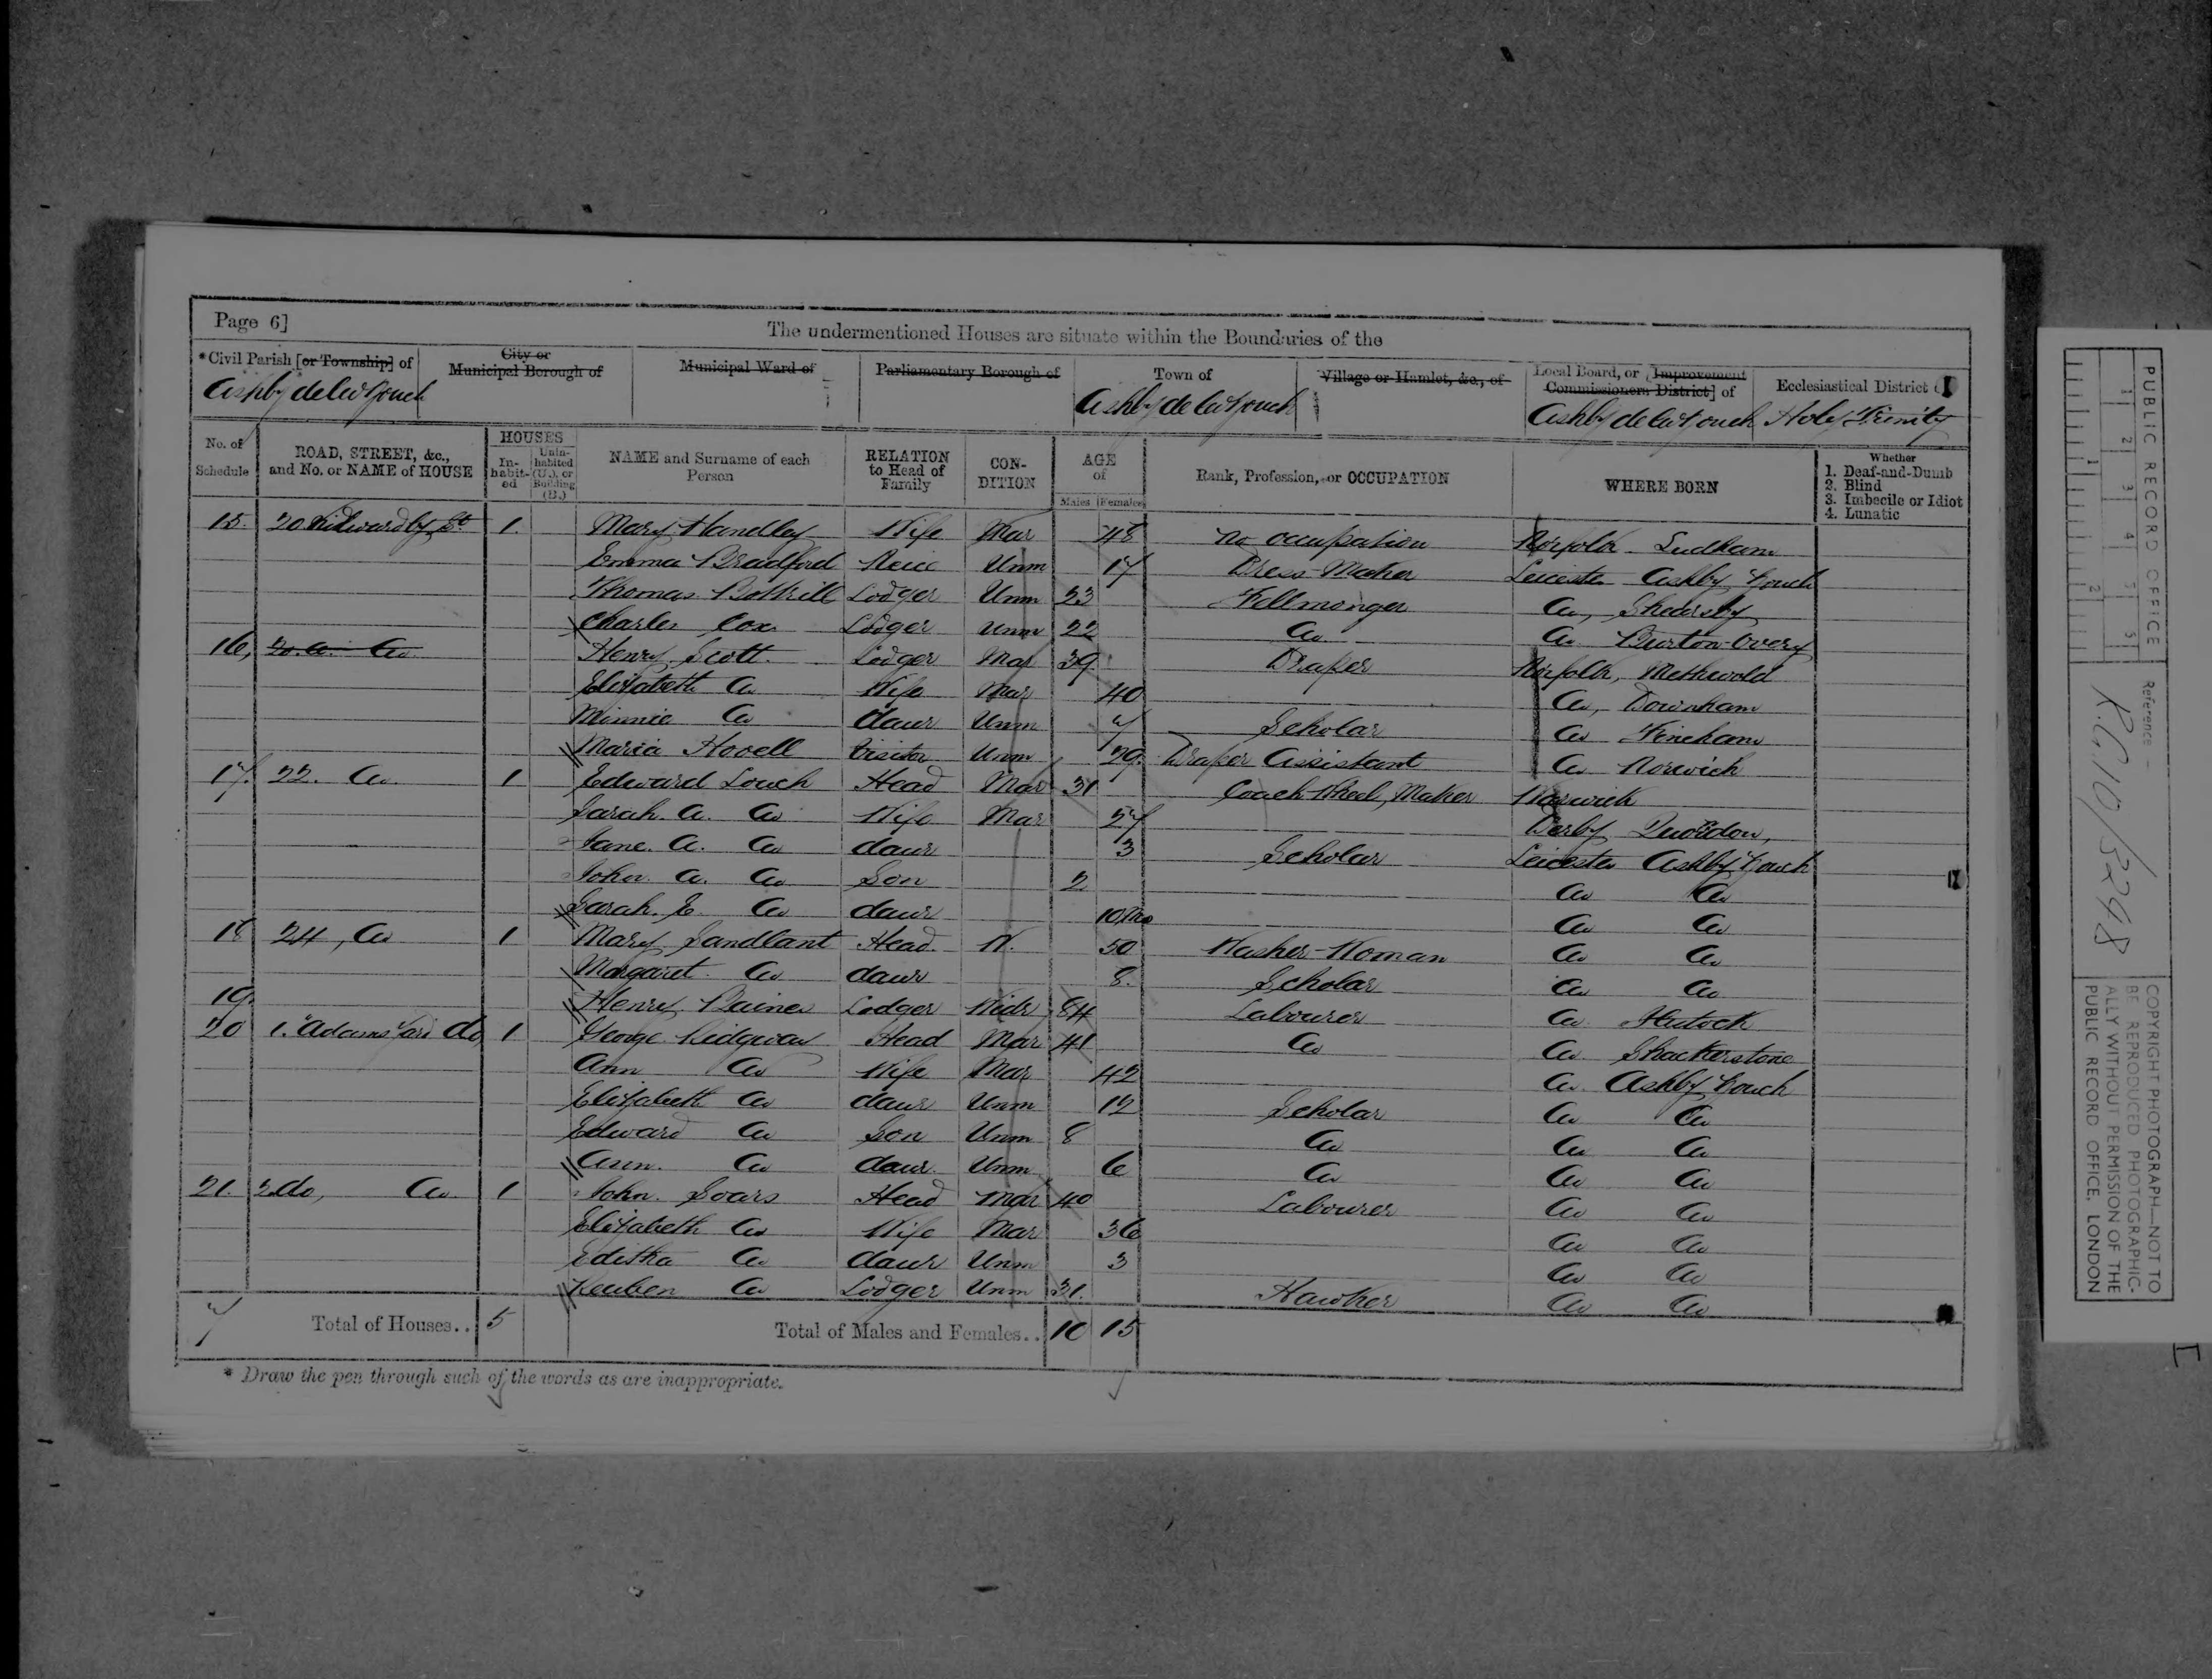 Page 6]
The undermentioned Houses are situate within the Boundaries of the
*Civil Parish [or Township] of
City or Municipal Borough of
Municipal Ward of
Parliamentary Borough of
Town of
Village or Hamlet, &c., of
Local Board, or [Improvement Commissioners District] of
Ecclesiastical District of
Ashby de la Zouch
Ashby de la Zouch
Ashby de la Zouch
Holy Trinity
No. of Schedule
ROAD, STREET, &c., and No. or NAME of HOUSE
HOUSES
In-habit-ed
Unin-habited (U.), or Building (B.)
NAME and Surname of each Person
RELATION to Head of Family
CON-DITION
AGE of
Males
Females
Rank, Profession, or OCCUPATION
WHERE BORN
Whether
1. Deaf-and-Dumb
2. Blind
3. Imbecile or Idiot
4. Lunatic
15. 20 St 1. Mary Handley Wife Mar 48 No occupation Norfolk Ludham
Emma Bradford Neice Unm 17 Dress Maker Leicester Ashby Zouch
Thomas Bottrill Lodger Unm 23 Fellmonger Do, Shearsby
Charles Cox Lodger Unm 22 Do Do Burton Overy
16, 20. Do Do Henry Scott Lodger Mar 39 Draper Norfolk, Methwold
Elizabeth Do Wife Mar 40 Do, Downham
Minnie Do daur Unm 7 Scholar Do Fincham
Maria Hovell Visitor Unm 29 Draper Assistant Do Norwich
17. 22. Do 1 Edward Louch Head Mar 31 Coach Wheel Maker Warwick
Sarah. A. Do Wife Mar 27 Derby
Jane. A. Do daur 3 Scholar Leicester Ashby Zouch
John. A. Do Son 2 Do Do
Sarah. E. Do daur 10 Mo Do Do
18 24, Do 1 Mary Sandlant Head W. 50 Washer-Woman Do Do
Margaret Do daur 8. Scholar Do Do
19. Henry Baines Lodger Widr 84 Labourer Do
20 1. Adams Yard Do 1 George Ridgway Head Mar 41 Do Do Shackerstone
Ann Do Wife Mar 42 Do Ashby Zouch
Elizabeth Do daur Unm 12 Scholar Do Do
Edward Do Son Unm 8 Do Do Do
Ann. Do daur Unm 6 Do Do Do
21. 2 do, Do 1 John. Soars Head Mar 40 Labourer Do Do
Elizabeth Do Wife Mar 36 Do Do
Editha Do daur Unm 3 Do Do
Reuben Do Lodger Unm 31. Hawker Do Do
7 Total of Houses.. 5 Total of Males and Females.. 10 15
* Draw the pen through such of the words as are inappropriate.
PUBLIC RECORD OFFICE
1 2 3 4 5
1 2
Reference
R.G. 10/3248
COPYRIGHT PHOTOGRAPH—NOT TO
BE REPRODUCED PHOTOGRAPHIC-
ALLY WITHOUT PERMISSION OF THE
PUBLIC RECORD OFFICE, LONDON